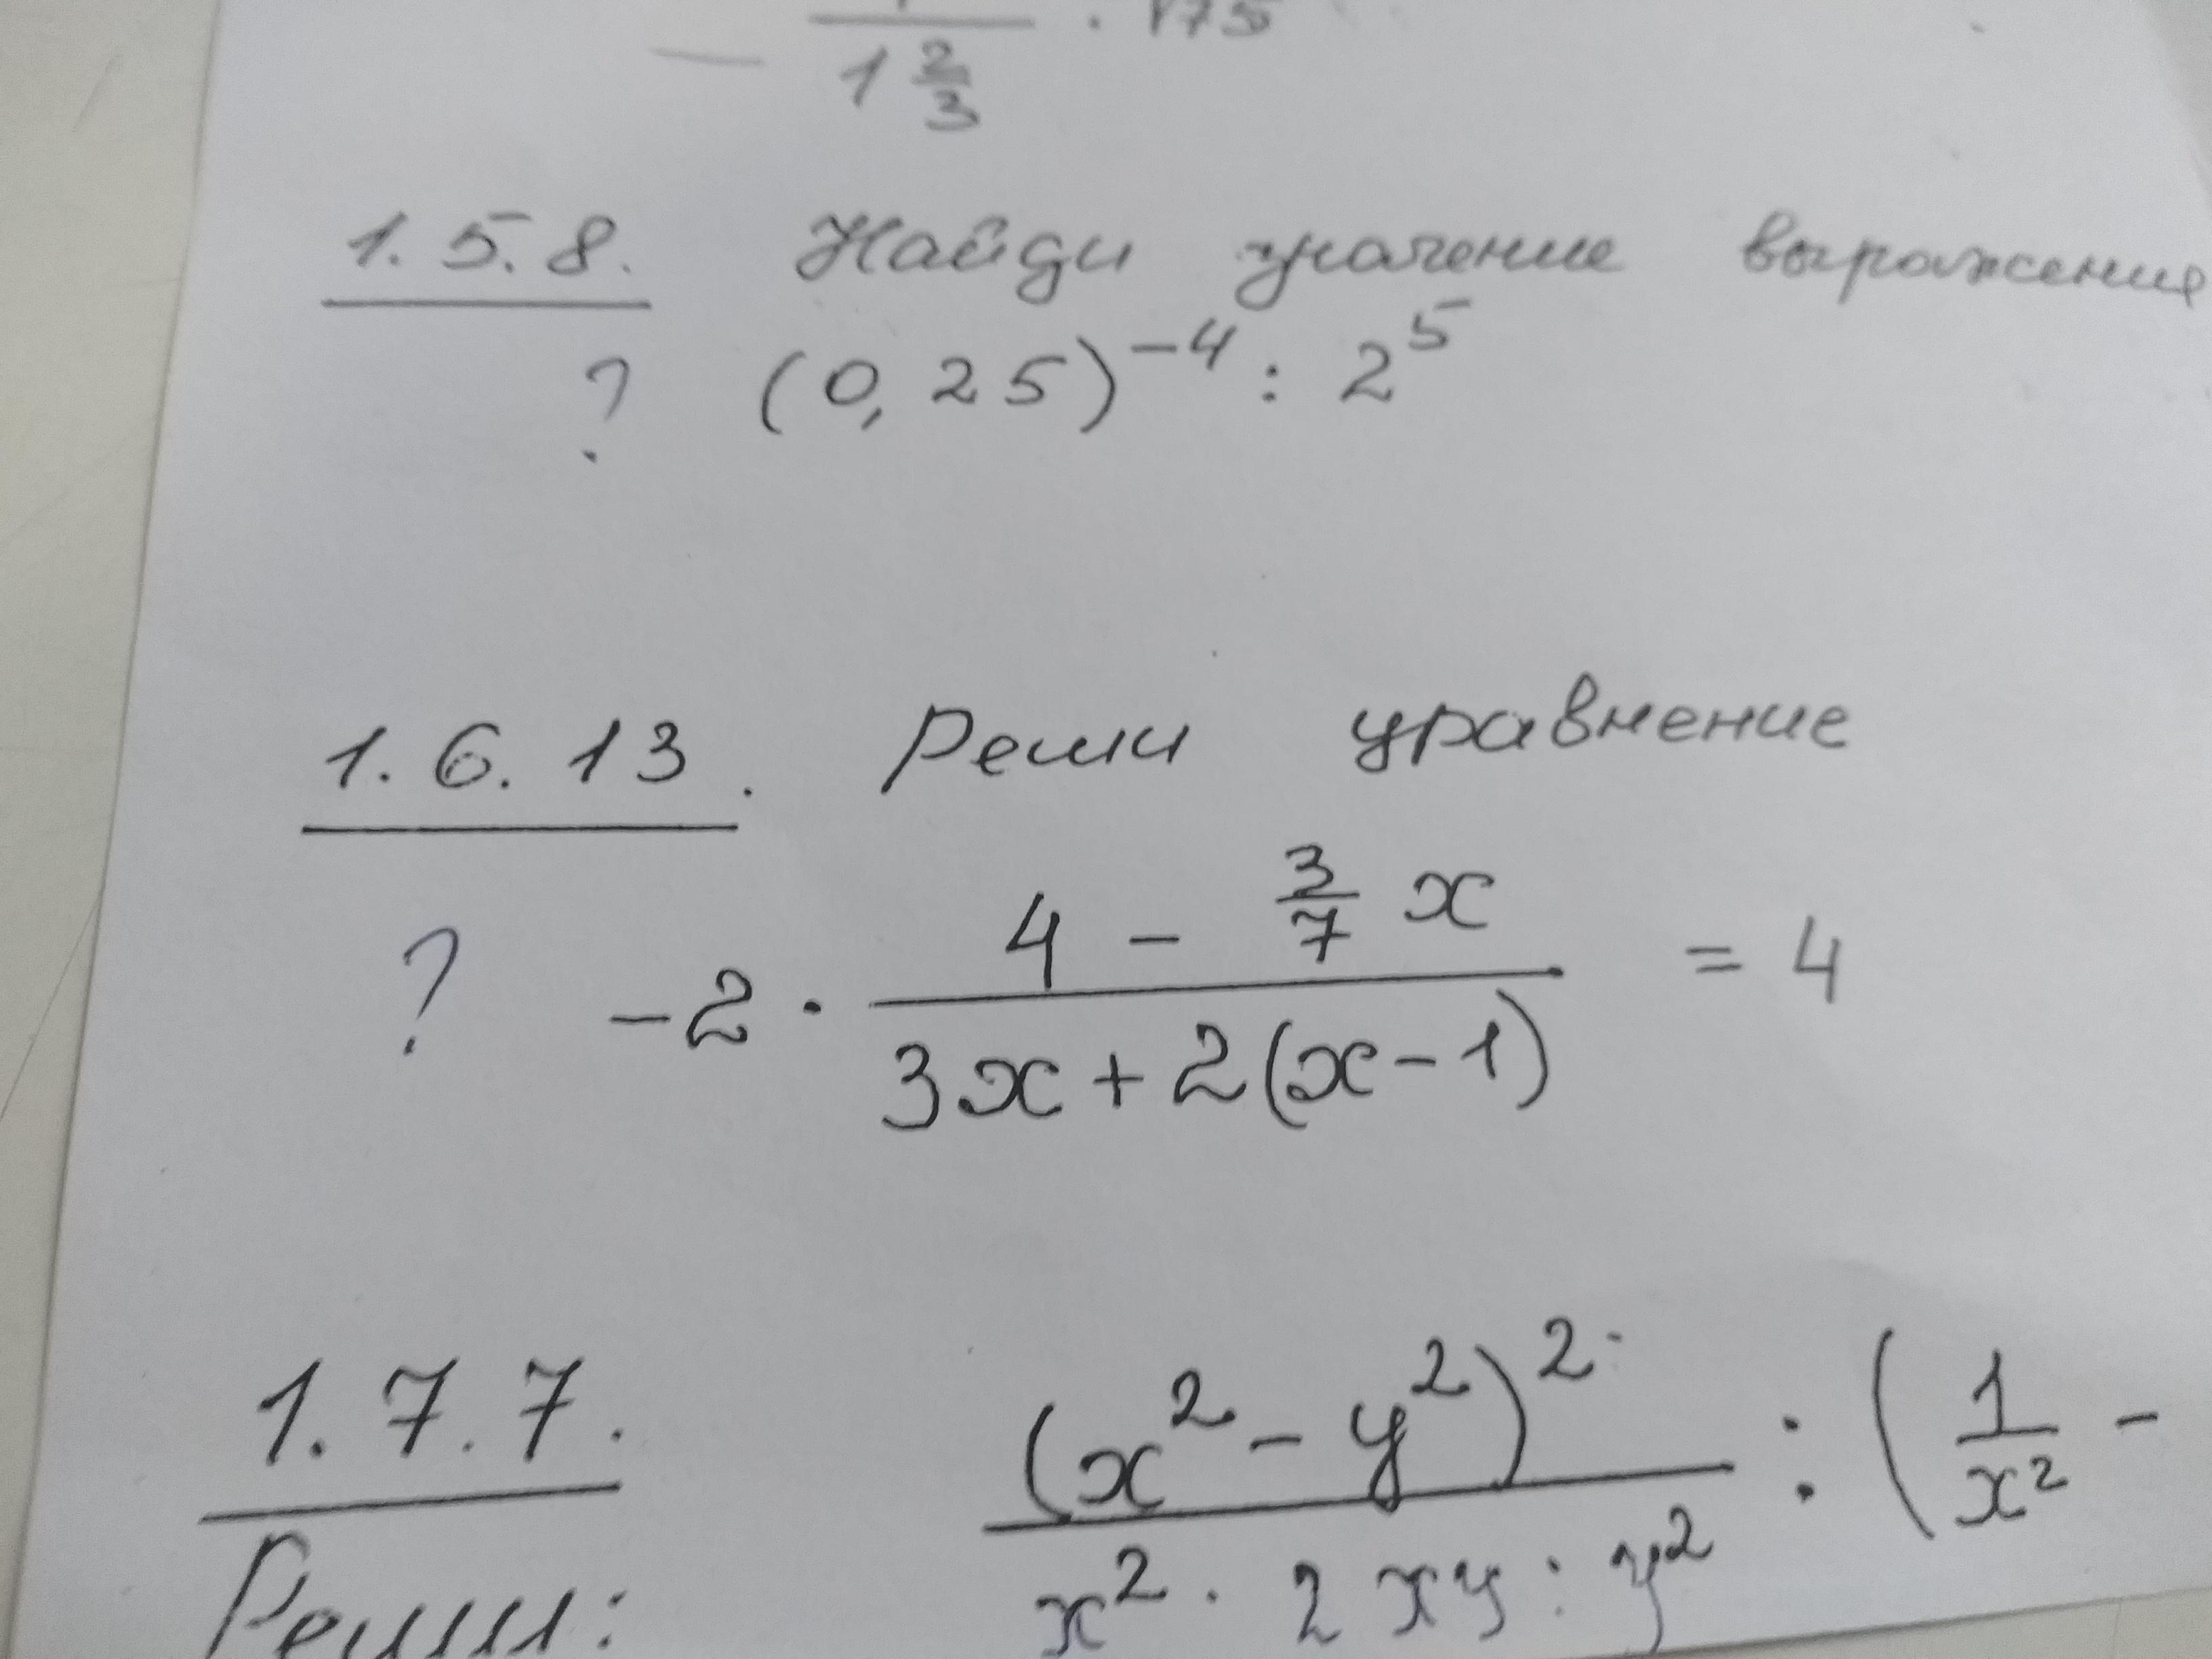 — ─── · 175
1 2/3
1.5.8. Найди значение выражения
? (0,25)⁻⁴ : 2⁵
1.6.13. Реши уравнение
? -2 · (4 - 3/7 x)/(3x + 2(x - 1)) = 4
1.7.7. (x² - y²)² / (x² · 2xy : y²) : (1/x² -
Реши: